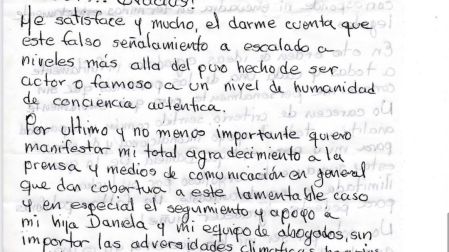 Gracias!
Me satisface y mucho, el darme cuenta que
este falso señalamiento a escalado a
niveles más alla del puro hecho de ser
actor o famoso a un nivel de humanidad
de conciencia autentica.
Por ultimo y no menos importante quiero
manifestar mi total agradecimiento a la
prensa y medios de comunicación en general
que dan cobertura a este lamentable caso
y en especial el seguimiento y apoyo a
mi hija Daniela y mi equipo de abogados, sin
importar las adversidades climaticas